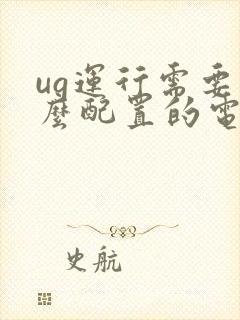 ug運行需要
麽配置的電
史航